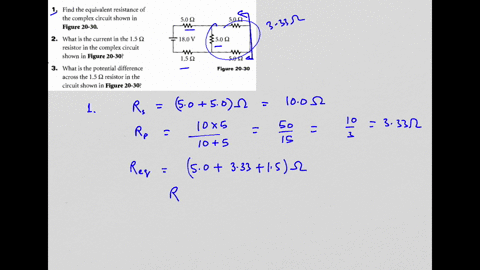 1. Find the equivalent resistance of
the complex circuit shown in
Figure 20-30.
2. What is the current in the 1.5 Ω
resistor in the complex circuit
shown in Figure 20-30?
3. What is the potential difference
across the 1.5 Ω resistor in the
circuit shown in Figure 20-30?
5.0 Ω 5.0 Ω
18.0 V 5.0 Ω
1.5 Ω 5.0 Ω
Figure 20-30
3.33Ω
1. Rs = (5.0+5.0)Ω = 10.0Ω
Rp = 10×5 / 10+5 = 50/15 = 10/3 = 3.33Ω
Req = (5.0 + 3.33 + 1.5) Ω
R